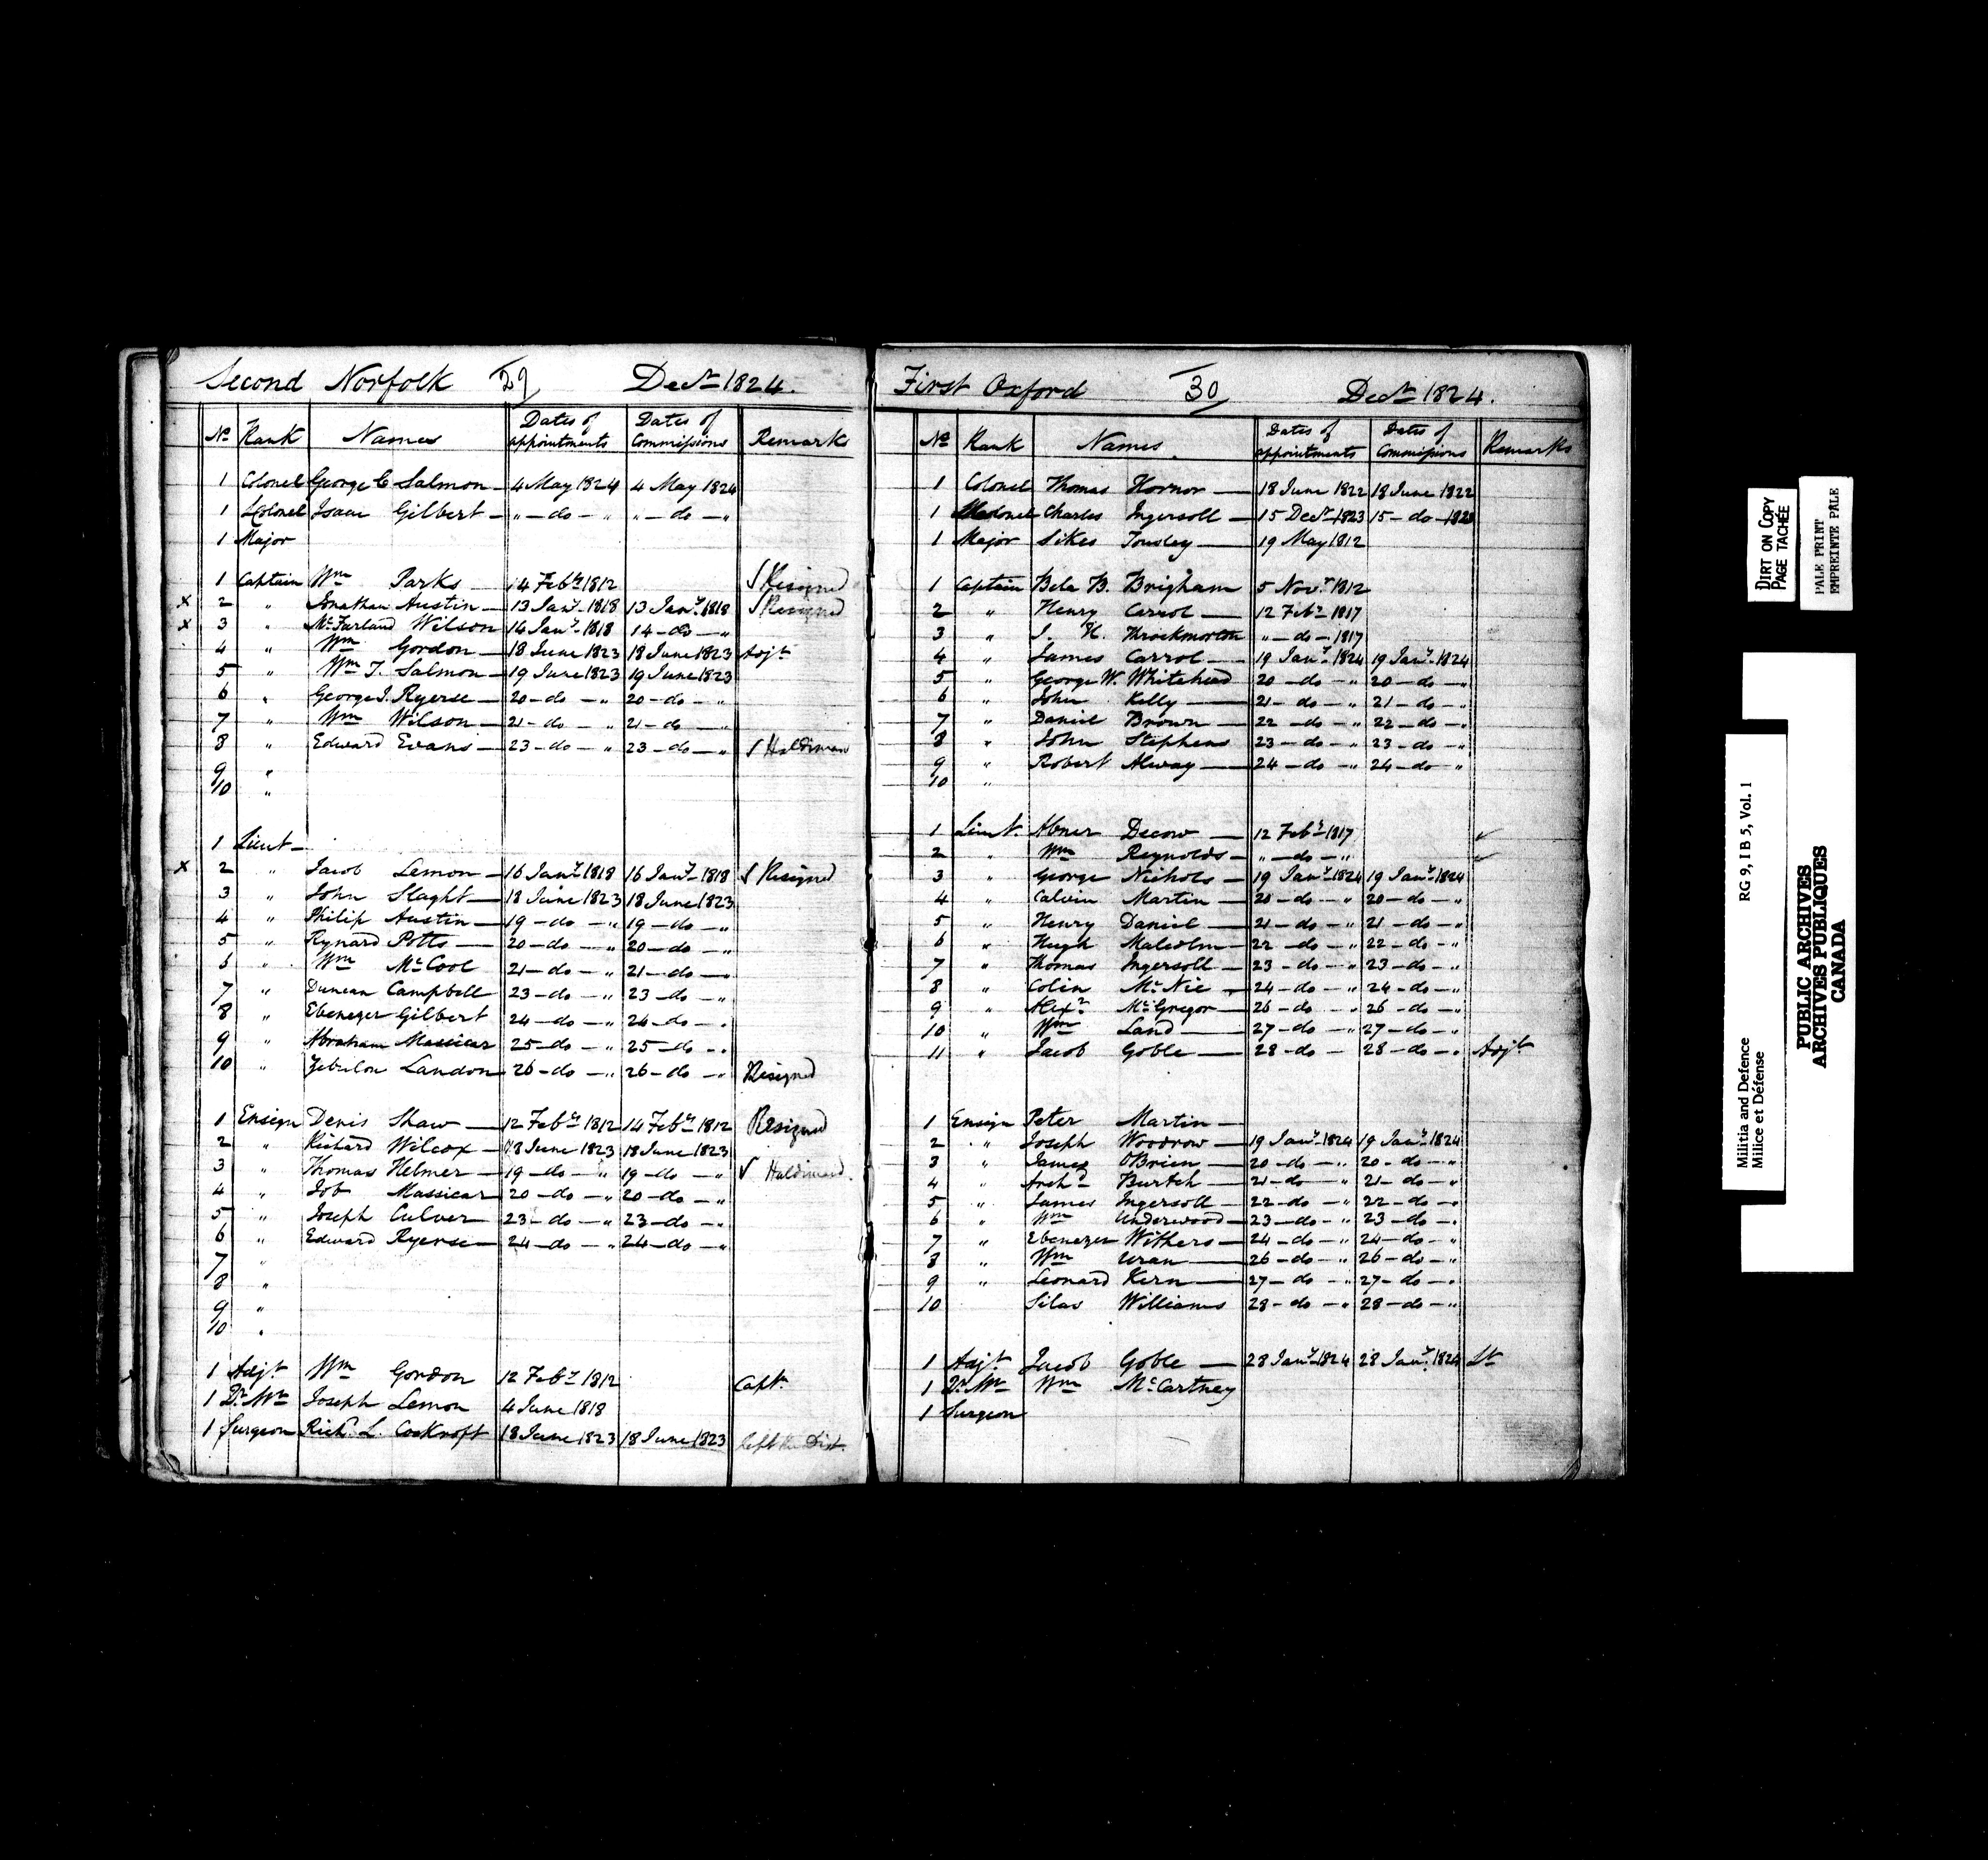 Second Norfolk 29 Decr 1824.
No Rank Names Dates of appointments Dates of Commissions Remarks
1 Colonel George C Salmon 4 May 1824 4 May 1824
1 Lt Colonel Isaac Gilbert " do " " do "
1 Major
1 Captain Wm Parks 14 Feby 1812 √ Resigned
x 2 " Jonathan Austin 13 Jany 1818 13 Jany 1818 √ Resigned
x 3 " McFarland Wilson 14 Jany 1818 14 do "
4 " Wm Gordon 18 June 1823 18 June 1823 Adjt
5 " Wm T. Salmon 19 June 1823 19 June 1823
6 " George J. Ryerse 20 do " 20 do "
7 " Wm Wilson 21 do " 21 do "
8 " Edward Evans 23 do " 23 do " √ Haldiman
9 "
10 "
1 Lieut
x 2 " Jacob Lemon 16 Jany 1818 16 Jany 1818 √ Resigned
3 " John Slaght 18 June 1823 18 June 1823
4 " Philip Austin 19 do " 19 do "
5 " Rynard Potts 20 do " 20 do "
6 " Wm McCool 21 do " 21 do "
7 " Duncan Campbell 23 do " 23 do "
8 " Ebenezer Gilbert 24 do " 24 do "
9 " Abraham Massicar 25 do " 25 do "
10 " Zebulon Landon 26 do " 26 do " Resigned
1 Ensign Denis Shaw 12 Feby 1812 14 Feby 1812 Resigned
2 " Richard Wilcox 18 June 1823 18 June 1823
3 " Thomas Helmer 19 do " 19 do " √ Haldimand.
4 " Job Massicar 20 do " 20 do "
5 " Joseph Culver 23 do " 23 do "
6 " Edward Ryerse 24 do " 24 do "
7 "
8 "
9 "
10 "
1 Adjt Wm Gordon 12 Feby 1812 Capt.
1 Qr Mr Joseph Lemon 4 June 1818
1 Surgeon Richd L. Cockroft 18 June 1823 18 June 1823 left the Dist.
First Oxford 30 Decr 1824.
No Rank Names Dates of appointments Dates of Commissions Remarks
1 Colonel Thomas Hornor 18 June 1822 18 June 1822
1 Colonel Charles Ingersoll 15 Decr 1823 15 do 1823
1 Major Sikes Tousley 19 May 1812
1 Captain Bela B. Brigham 5 Novr 1812
2 " Henry Carrol 12 Feby 1817
3 " J. H. Throckmorton " do 1817
4 " James Carrol 19 Jany 1824 19 Jany 1824
5 " George W. Whitehead 20 do " 20 do "
6 " John Kelly 21 do " 21 do "
7 " Daniel Brown 22 do " 22 do "
8 " John Stephens 23 do " 23 do "
9 " Robert Alway 24 do " 24 do "
10 "
1 Lieut. Abner Decow 12 Feby 1817 ✓
2 " Wm Reynolds " do " ✓
3 " George Nichols 19 Jany 1824 19 Jany 1824
4 " Calvin Martin 20 do " 20 do "
5 " Henry Daniel 21 do " 21 do "
6 " Hugh Malcolm 22 do " 22 do "
7 " Thomas Ingersoll 23 do " 23 do "
8 " Colin McNie 24 do " 24 do "
9 " Alexr McGregor 26 do " 26 do "
10 " Wm Land 27 do " 27 do "
11 " Jacob Goble 28 do 28 do " Adjt
1 Ensign Peter Martin
2 " Joseph Woodrow 19 Jany 1824 19 Jany 1824
3 " James OBrien 20 do " 20 do "
4 " Archd Burtch 21 do " 21 do "
5 " James Ingersoll 22 do " 22 do "
6 " Wm Underwood 23 do " 23 do "
7 " Ebenezer Withers 24 do " 24 do "
8 " Wm Uran 26 do " 26 do "
9 " Leonard Kern 27 do " 27 do "
10 Silas Williams 28 do " 28 do "
1 Adjt Jacob Goble 28 Jany 1824 28 Jany 1824 Lt
1 Qr Mr Wm McCartney
1 Surgeon
DIRT ON COPY
PAGE TACHÉE
PALE PRINT
EMPREINTE PÂLE
Militia and Defence RG 9, I B 5, Vol. 1
Milice et Défense
PUBLIC ARCHIVES
ARCHIVES PUBLIQUES
CANADA